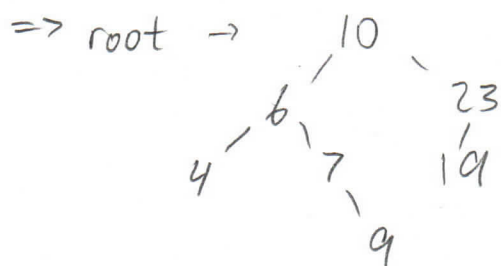 => root → 10
6 23
4 7 19
9